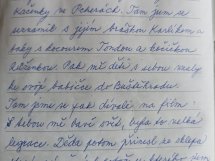 Kačenky na Pekeráck. Tam jsem se
seznámil s jejím bráškou Karlíkem a
taky s kocourem Tondou a kočičkou
Pak mě děti s sebou vzaly
ke svojí babičce do Buštěhradu.
Tam jsme se pak dívali na filmy.
S sebou mě bavil svět, byla to velká
legrace. Děda potom přinesl ze sklepa